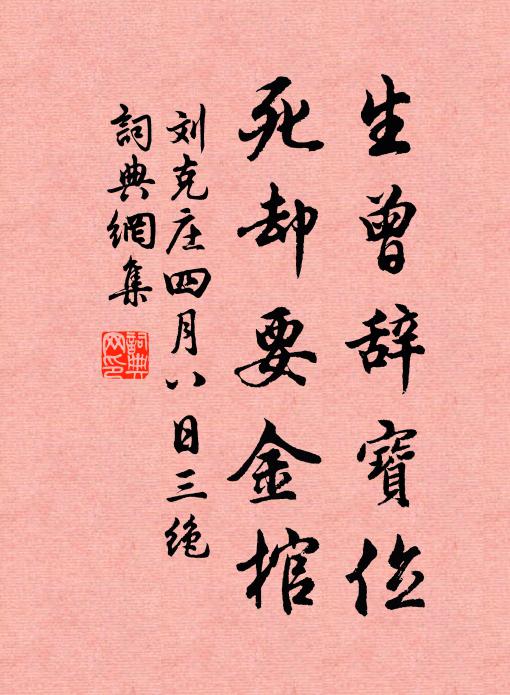 生曾辞寶位
死却要金棺
刘克庄四月八日三绝
詞典網集
詞典
网印